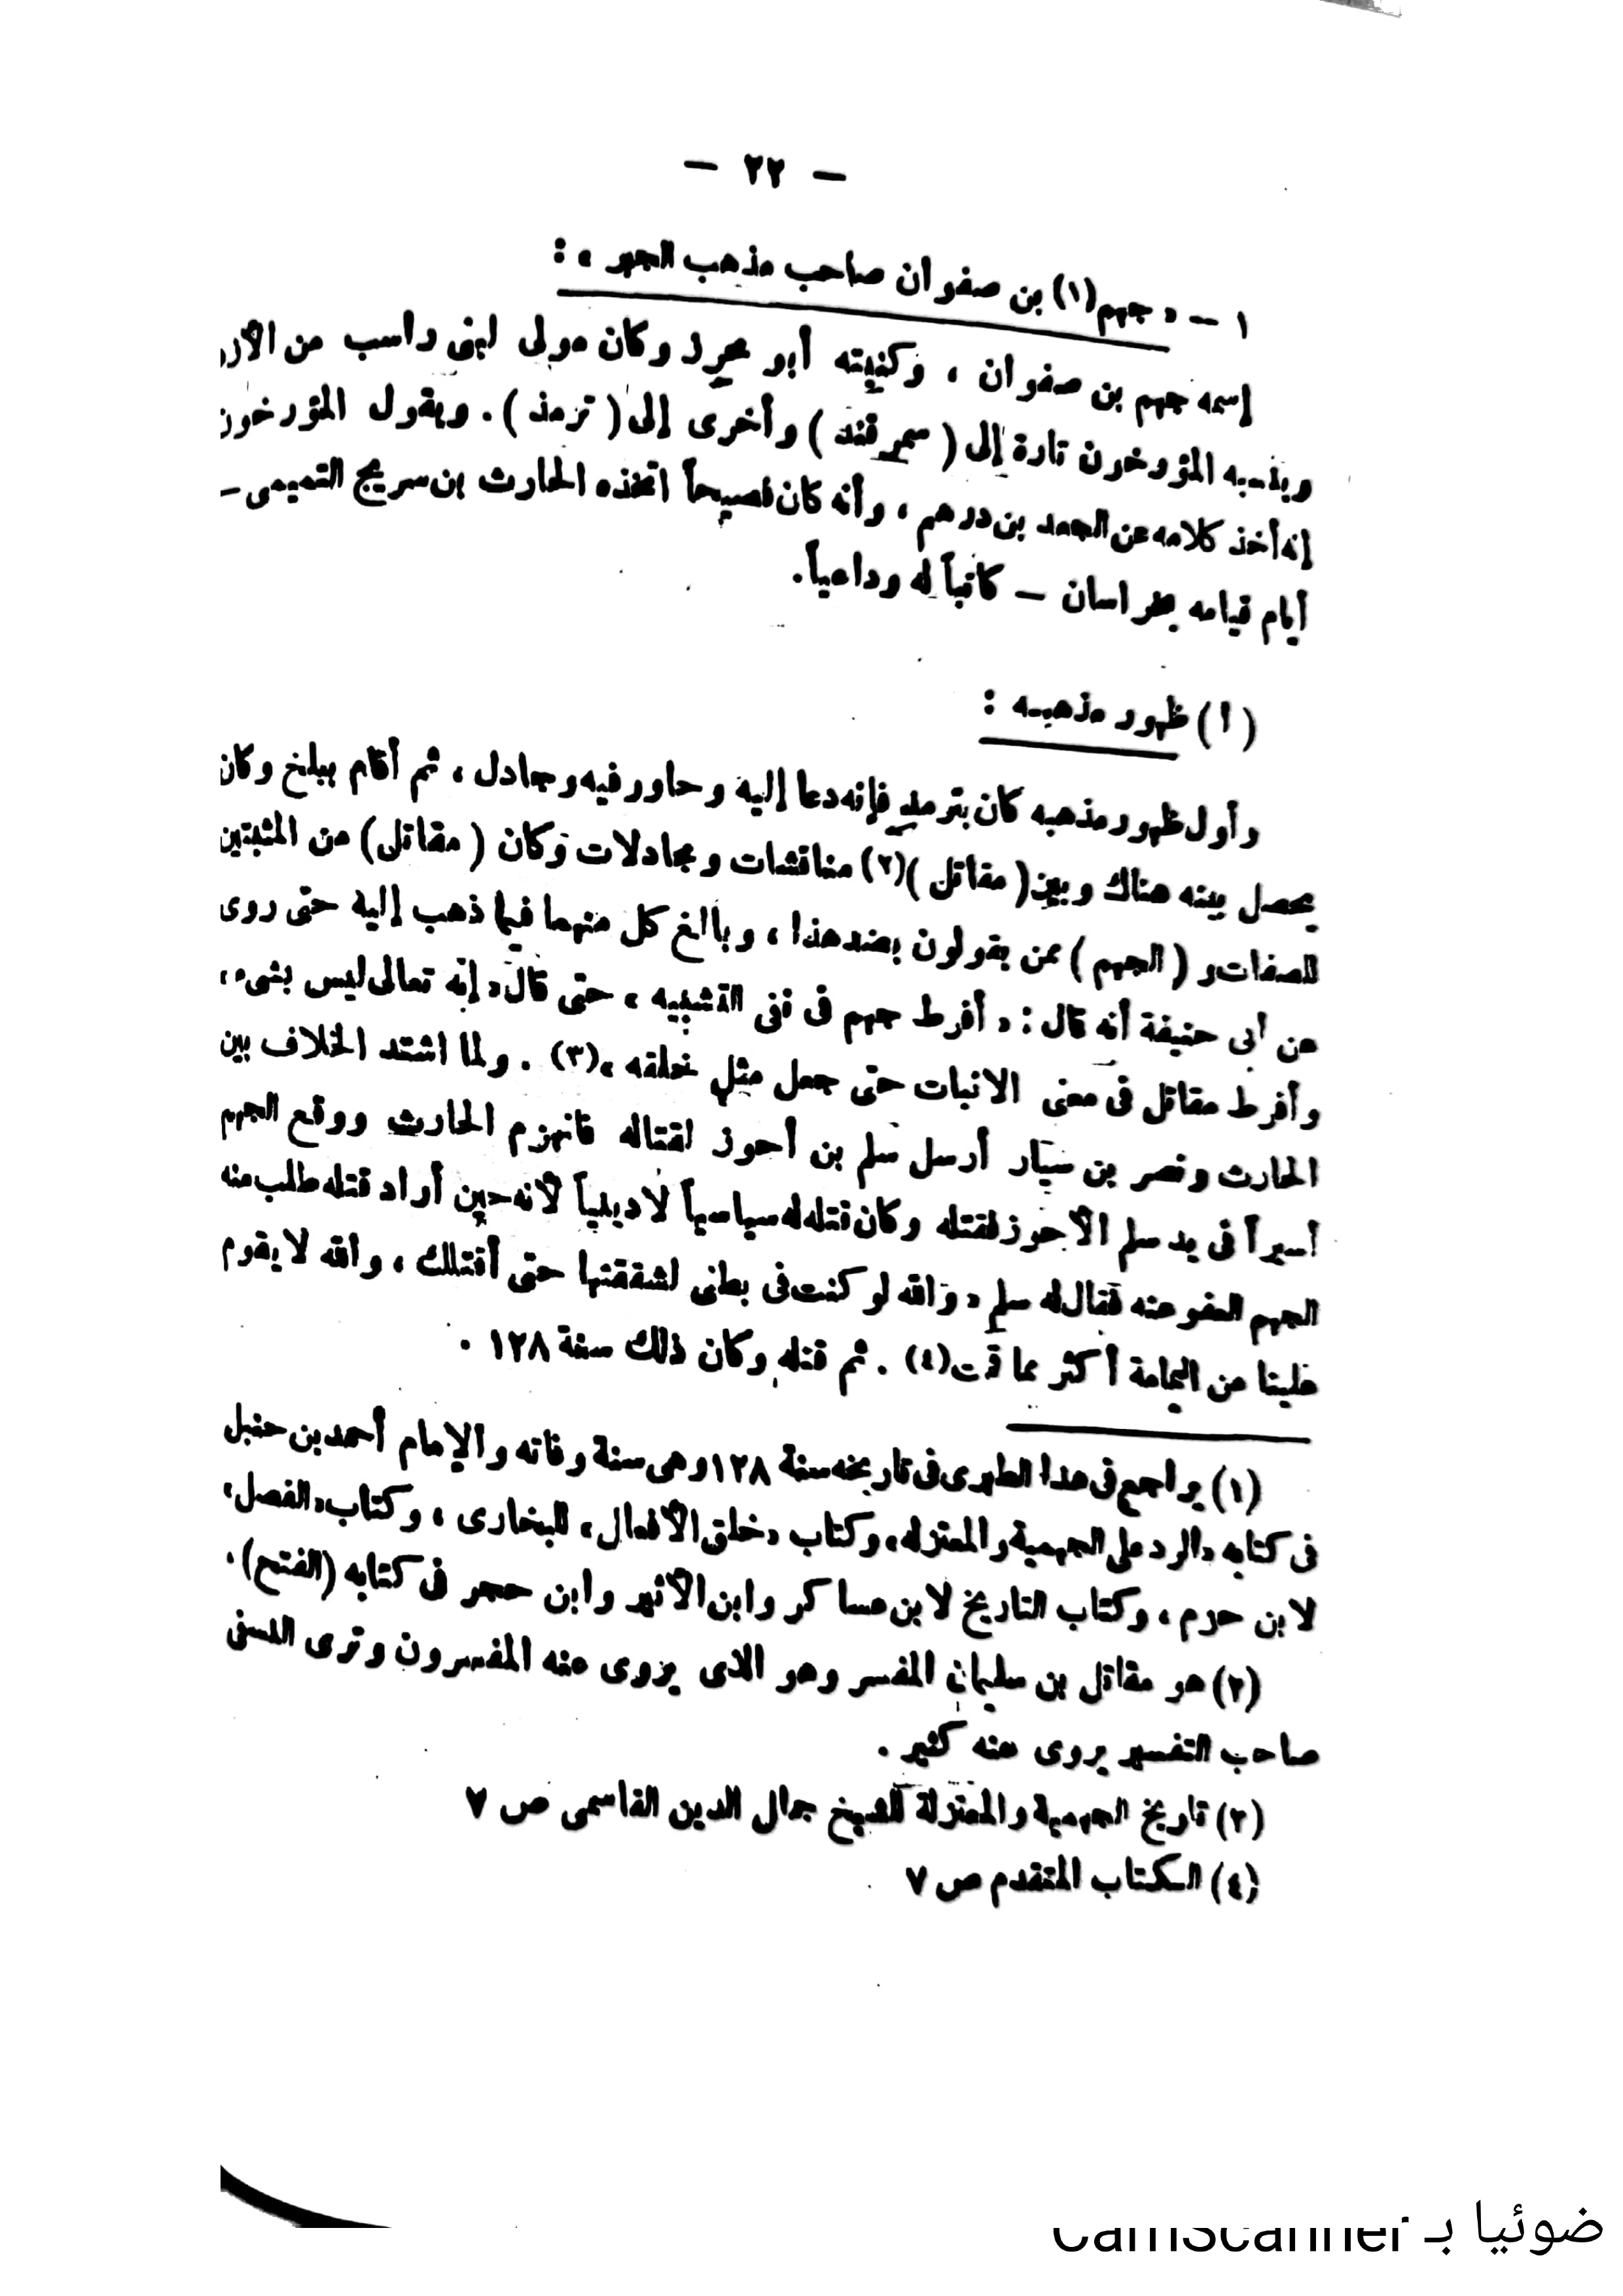 — ٢٢ —
١ — « جهم(١) بن صفوان صاحب مذهب الجبر » :
إسمه جهم بن صفوان ، وكنيته أبو محرز وكان مولى لبنى راسب من الأزد
وينسبه المؤرخون تارة إلى ( سمرقند ) وأخرى إلى ( ترمذ ) . ويقول المؤرخون
إنه أخذ كلامه عن الجعد بن درهم ، وأنه كان فصيحاً اتخذه الحارث بن سريج التميمى —
أيام قيامه بخراسان — كاتباً له وداعياً .
( ا ) ظهور مذهبه :
وأول ظهور مذهبه كان بترمذ فإنه دعا إليه وحاور فيه وجادل ، ثم أقام ببلخ وكان
يحصل بينه هناك وبين ( مقاتل )(٢) مناقشات ومجادلات وكان ( مقاتل ) من المثبتين
للصفات و ( الجهم ) ممن يقولون بضد هذا ، وبالغ كل منهما فيما ذهب إليه حتى روى
عن أبى حنيفة أنه قال : « أفرط جهم فى نفى التشبيه » حتى قال « إنه تعالى ليس بشىء ،
وأفرط مقاتل فى معنى الاثبات حتى جعل مثل خلقه »(٣) . ولما اشتد الخلاف بين
الحارث ونصر بن سيار أرسل سلم بن أحوز لقتاله فانهزم الحارث ووقع الجهم
أسيراً فى يد سلم الأحوز فقتله وكان قتله له سياسياً لا دينياً لأنه حين أراد قتله طلب منه
الجهم العفو عنه فقال له سلم « والله لو كنت فى بطنى لشققتها حتى أقتلك ، والله لا يقوم
علينا من اليمامة أكثر مما قمت(٤) . ثم قتله وكان ذلك سنة ١٢٨ .
(١) يراجع فى هذا الطبرى فى تاريخه سنة ١٢٨ وهى سنة وفاته والإمام أحمد بن حنبل
فى كتابه « الرد على الجهمية والمعتزله » وكتاب « خلق الأفعال » للبخارى ، وكتاب « الفصل »
لابن حزم ، وكتاب التاريخ لابن عساكر وابن الأثير وابن حجر فى كتابه (الفتح) .
(٢) هو مقاتل بن سليمان المفسر وهو الذى يروى عنه المفسرون وترى النسفى
صاحب التفسير يروى عنه كثير .
(٣) تاريخ الجهمية والمعتزلة للشيخ جمال الدين القاسمى ص ٧
(٤) الكتاب المتقدم ص ٧
ضوئيا بـ CamScanner